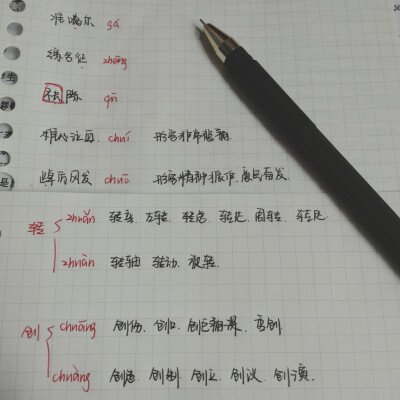 准噶尔 gá
绦虫征 zhēng
祛除 qū
椎心泣血 chuí 形容非常悲痛
踔厉风发 chuō 形容精神振作,意气有发
转 zhuǎn 转弯、左转、转念、转化、周转、转足
zhuàn 转轴 转动、旋转
创 chuāng 创伤、创口、创巨痛深、重创
chuàng 创造、创制、创立、创议、创演